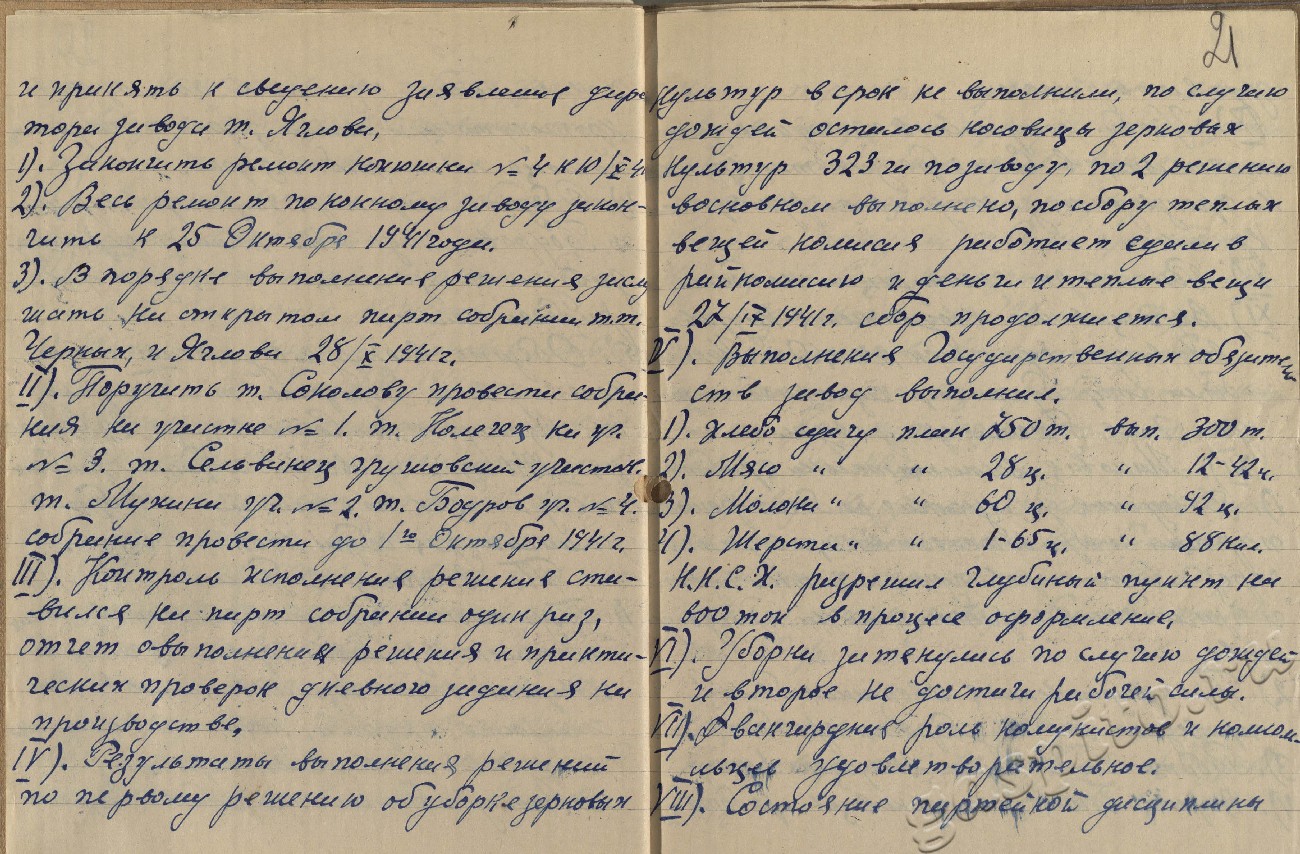 и принять к сведению заявление дирек
тора завода т. Яглова,
1). Закончить ремонт конюшни № 4 к 10/X 41
2). Весь ремонт по конному заводу закон-
чить к 25 Октября 1941 года.
3). В порядке выполнение решения заслу
шать на открытом парт собрании т.т.
Черных, и Яглова 28/X 1941г.
II). Поручить т. Соколову провести собра-
ния на участке № 1. т. Полечец на уч.
№ 3. т. Сельвинец грушовский участок.
т. Мухина уч. № 2. т. Бодров уч. № 4.
собрание провести до 1го Октября 1941г.
III). Контроль исполнения решения ста-
вился на парт собрании один раз,
отчет о выполнения решения и практи-
ческих проверок дневного задания на
производстве,
IV). Результаты выполнения решений
по первому решению об уборке зерновых
21
культур в срок не выполнили, по случаю
дождей осталось косовицы зерновых
культур 323 га по заводу, по 2 решению
восновном выполнено, по сбору теплых
вещей комисия работает сдали в
райкомисию и деньги и теплые вещи
27/IX 1941г. сбор продолжается.
V). Выполнения Государственных обязатель
ств завод выполнил.
1). Хлебо сдачу план 250 т. вып. 300 т.
2). Мясо " " 28 ц. " 12-42 ц.
3). Молоки " " 60 ц. " 92 ц.
4). Шерсти " " 1-65 ц. " 88 кил.
Н.К.С.Х. разрешил глубиный пункт на
воо тон в процесе оформление,
VI). Уборки затянулись по случаю дождей
и второе не достачи рабочей силы.
VII). Авангардная роль комунистов и комсом-
льцев удовлетворательное.
VIII). Состояние партейной дисциплины